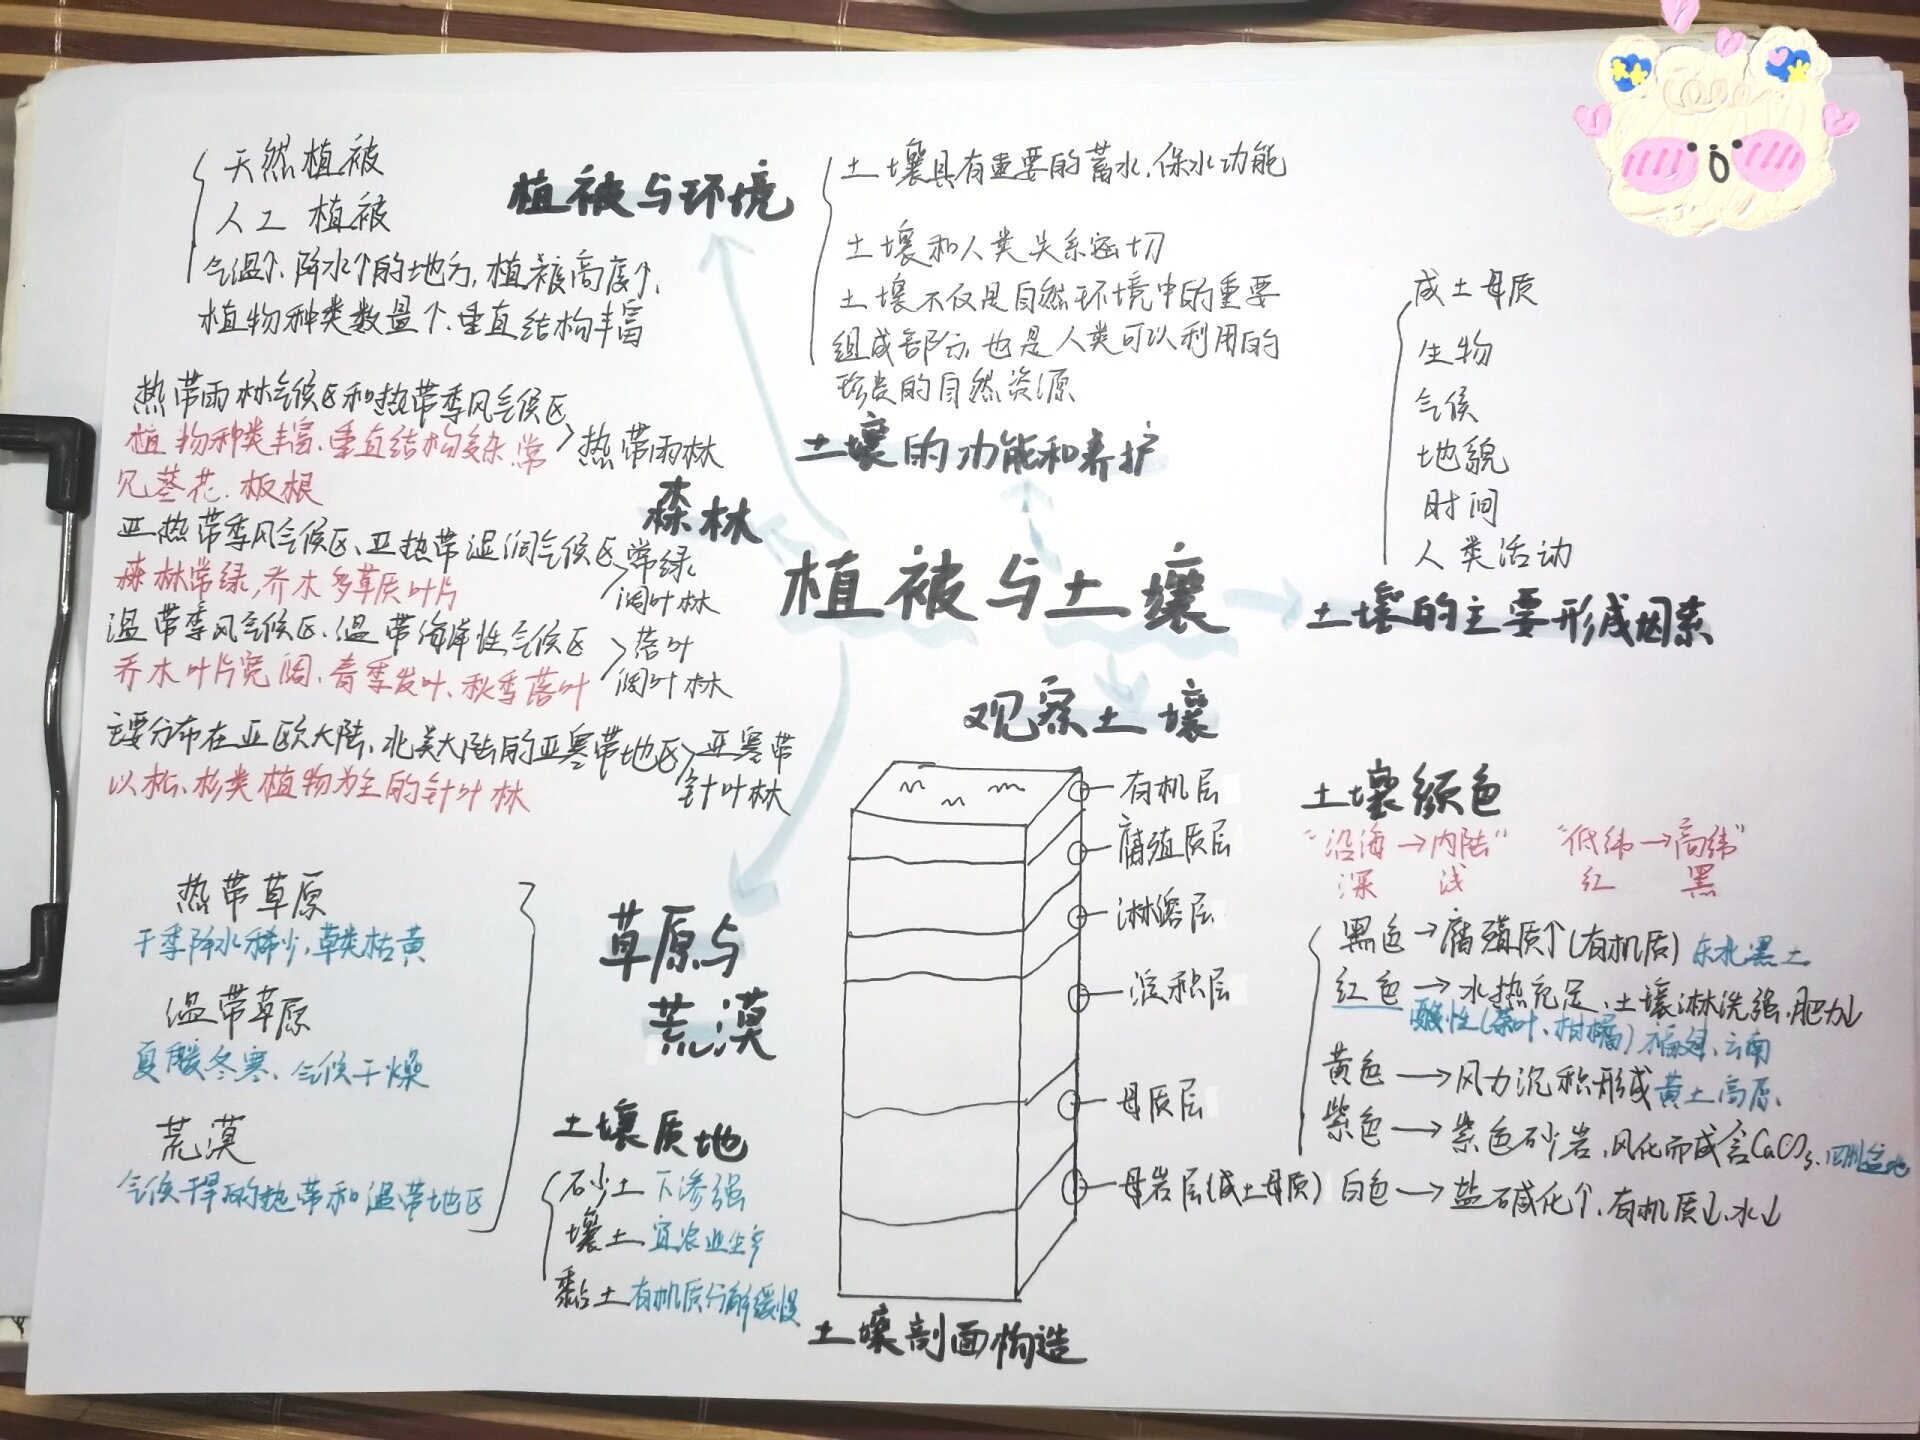 植被与土壤
植被与环境
天然植被
人工植被
气温个、降水个的地方,植被高度个、
植物种类数量个、垂直结构丰富
森林
热带雨林气候区和热带季风气候区
植物种类丰富、垂直结构复杂、常
见茎花、板根
热带雨林
亚热带季风气候区、亚热带湿润气候区
森林常绿,乔木多革质叶片
常绿
阔叶林
温带季风气候区、温带海洋性气候区
乔木叶片宽阔、春季发叶、秋季落叶
落叶
阔叶林
主要分布在亚欧大陆、北美大陆的亚寒带地区
以松、杉类植物为主的针叶林
亚寒带
针叶林
草原与
荒漠
热带草原
干季降水稀少,草类枯黄
温带草原
夏暖冬寒、气候干燥
荒漠
气候干旱的热带和温带地区
土壤具有重要的蓄水、保水功能
土壤和人类关系密切
土壤不仅是自然环境中的重要
组成部分,也是人类可以利用的
珍贵的自然资源
土壤的功能和养护
成土母质
生物
气候
地貌
时间
人类活动
土壤的主要形成因素
观察土壤
有机层
腐殖质层
淋溶层
淀积层
母质层
母岩层(成土母质)
土壤剖面构造
土壤质地
砂土 下渗强
壤土 宜农业生产
黏土 有机质分解缓慢
土壤颜色
“沿海→内陆” “低纬→高纬”
深 浅 红 黑
黑色→腐殖质个(有机质) 东北黑土
红色→水热充足、土壤淋洗强、肥力↓
酸性(茶叶、柑橘) 福建、云南
黄色→风力沉积形成 黄土高原、
紫色→紫色砂岩、风化而成含CaCO₃、四川盆地
白色→盐碱化个、有机质↓、水↓